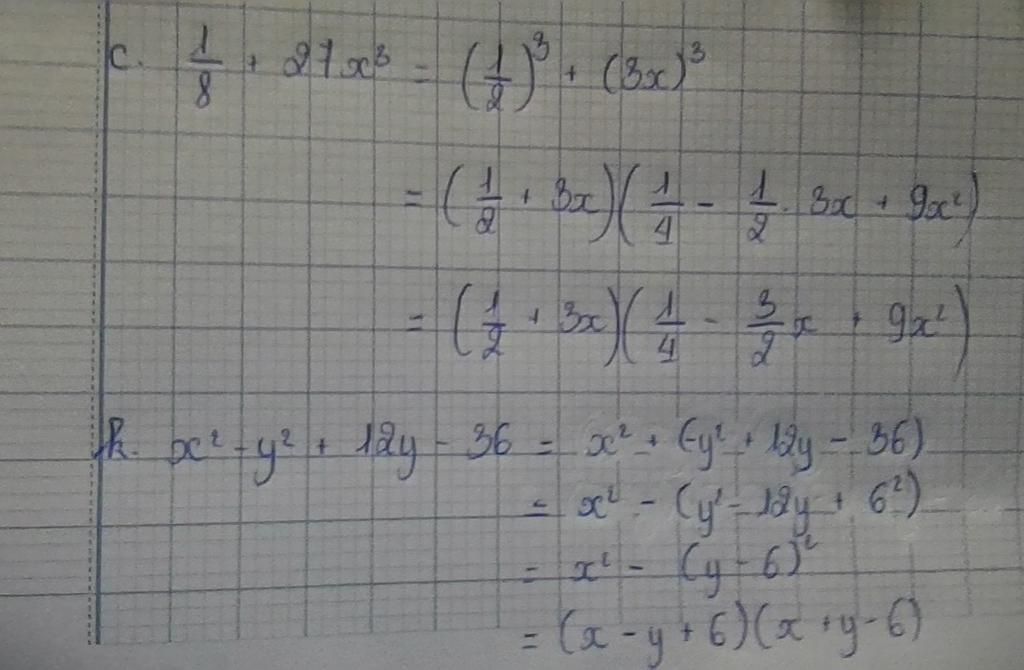 c. 1/8 + 27x³ = (1/2)³ + (3x)³
= (1/2 + 3x)(1/4 - 1/2 . 3x + 9x²)
= (1/2 + 3x)(1/4 - 3/2 x + 9x²)
k. x² - y² + 12y - 36 = x² + (-y² + 12y - 36)
= x² - (y² - 12y + 6²)
= x² - (y - 6)²
= (x - y + 6)(x + y - 6)